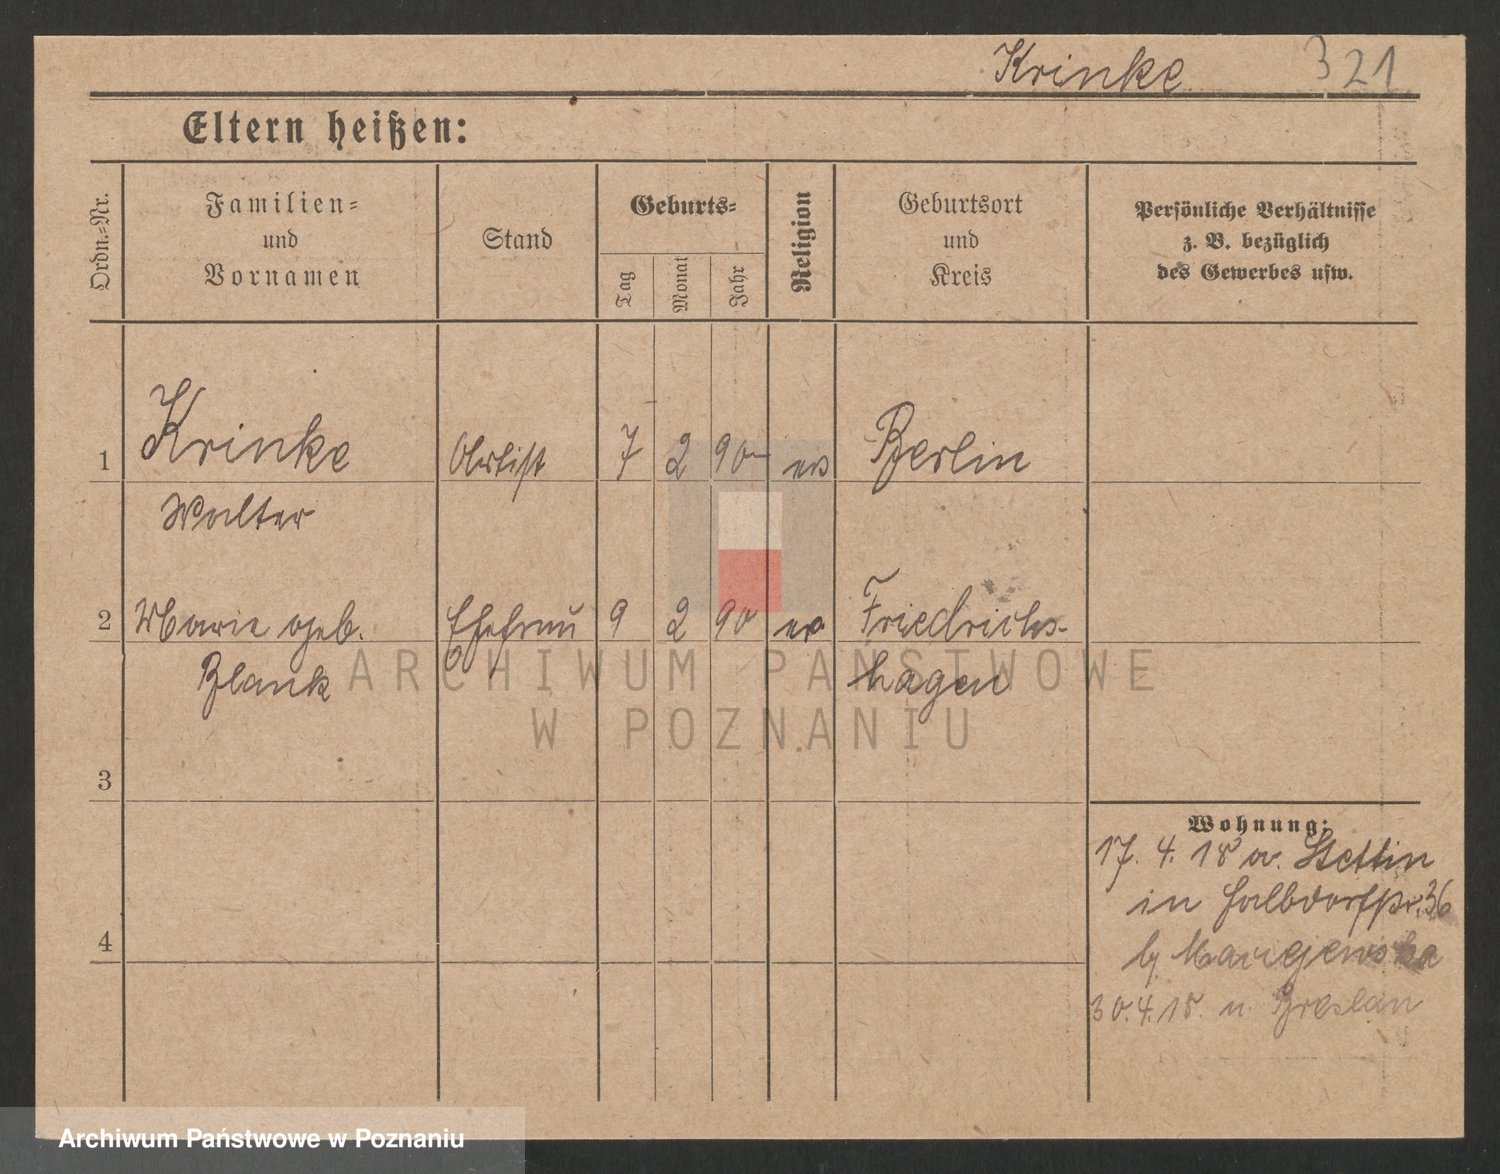 Krinke 321
Eltern heißen:
Ordn.-Nr.
Familien-
und
Vornamen
Stand
Geburts-
Tag
Monat
Jahr
Religion
Geburtsort
und
Kreis
Persönliche Verhältnisse
z. B. bezüglich
des Gewerbes usw.
1 Krinke Artist 7 2 90 ev Berlin
Walter
2 Marie geb. Ehefrau 9 2 90 ev Friedrichs-
Blank hagen
ARCHIWUM PAŃSTWOWE
W POZNANIU
3
Wohnung:
17. 4. 18 v. Stettin
in Halbdorfstr. 36
4
b/ Maciejewska
30.4.18. n. Breslau
Archiwum Państwowe w Poznaniu